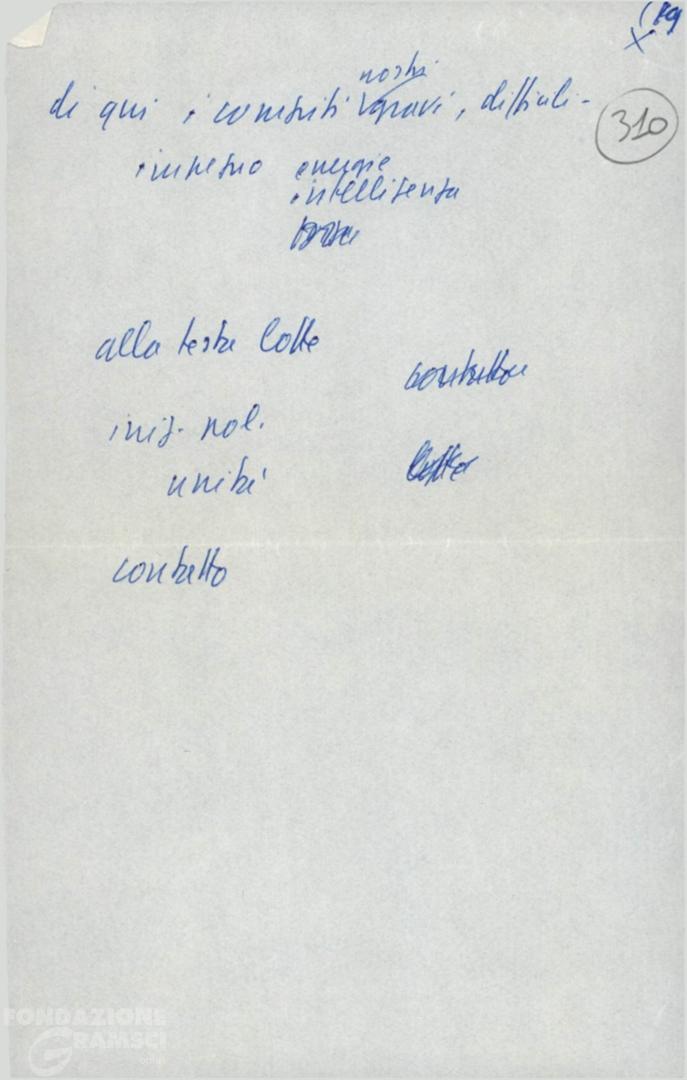 (19
X
310
nostri
di qui i compiti gravi, difficili -
impegno energie
intelligenza
alla testa lotte
contatto
iniz. pol.
unità
lotta
contatto
FONDAZIONE
GRAMSCI